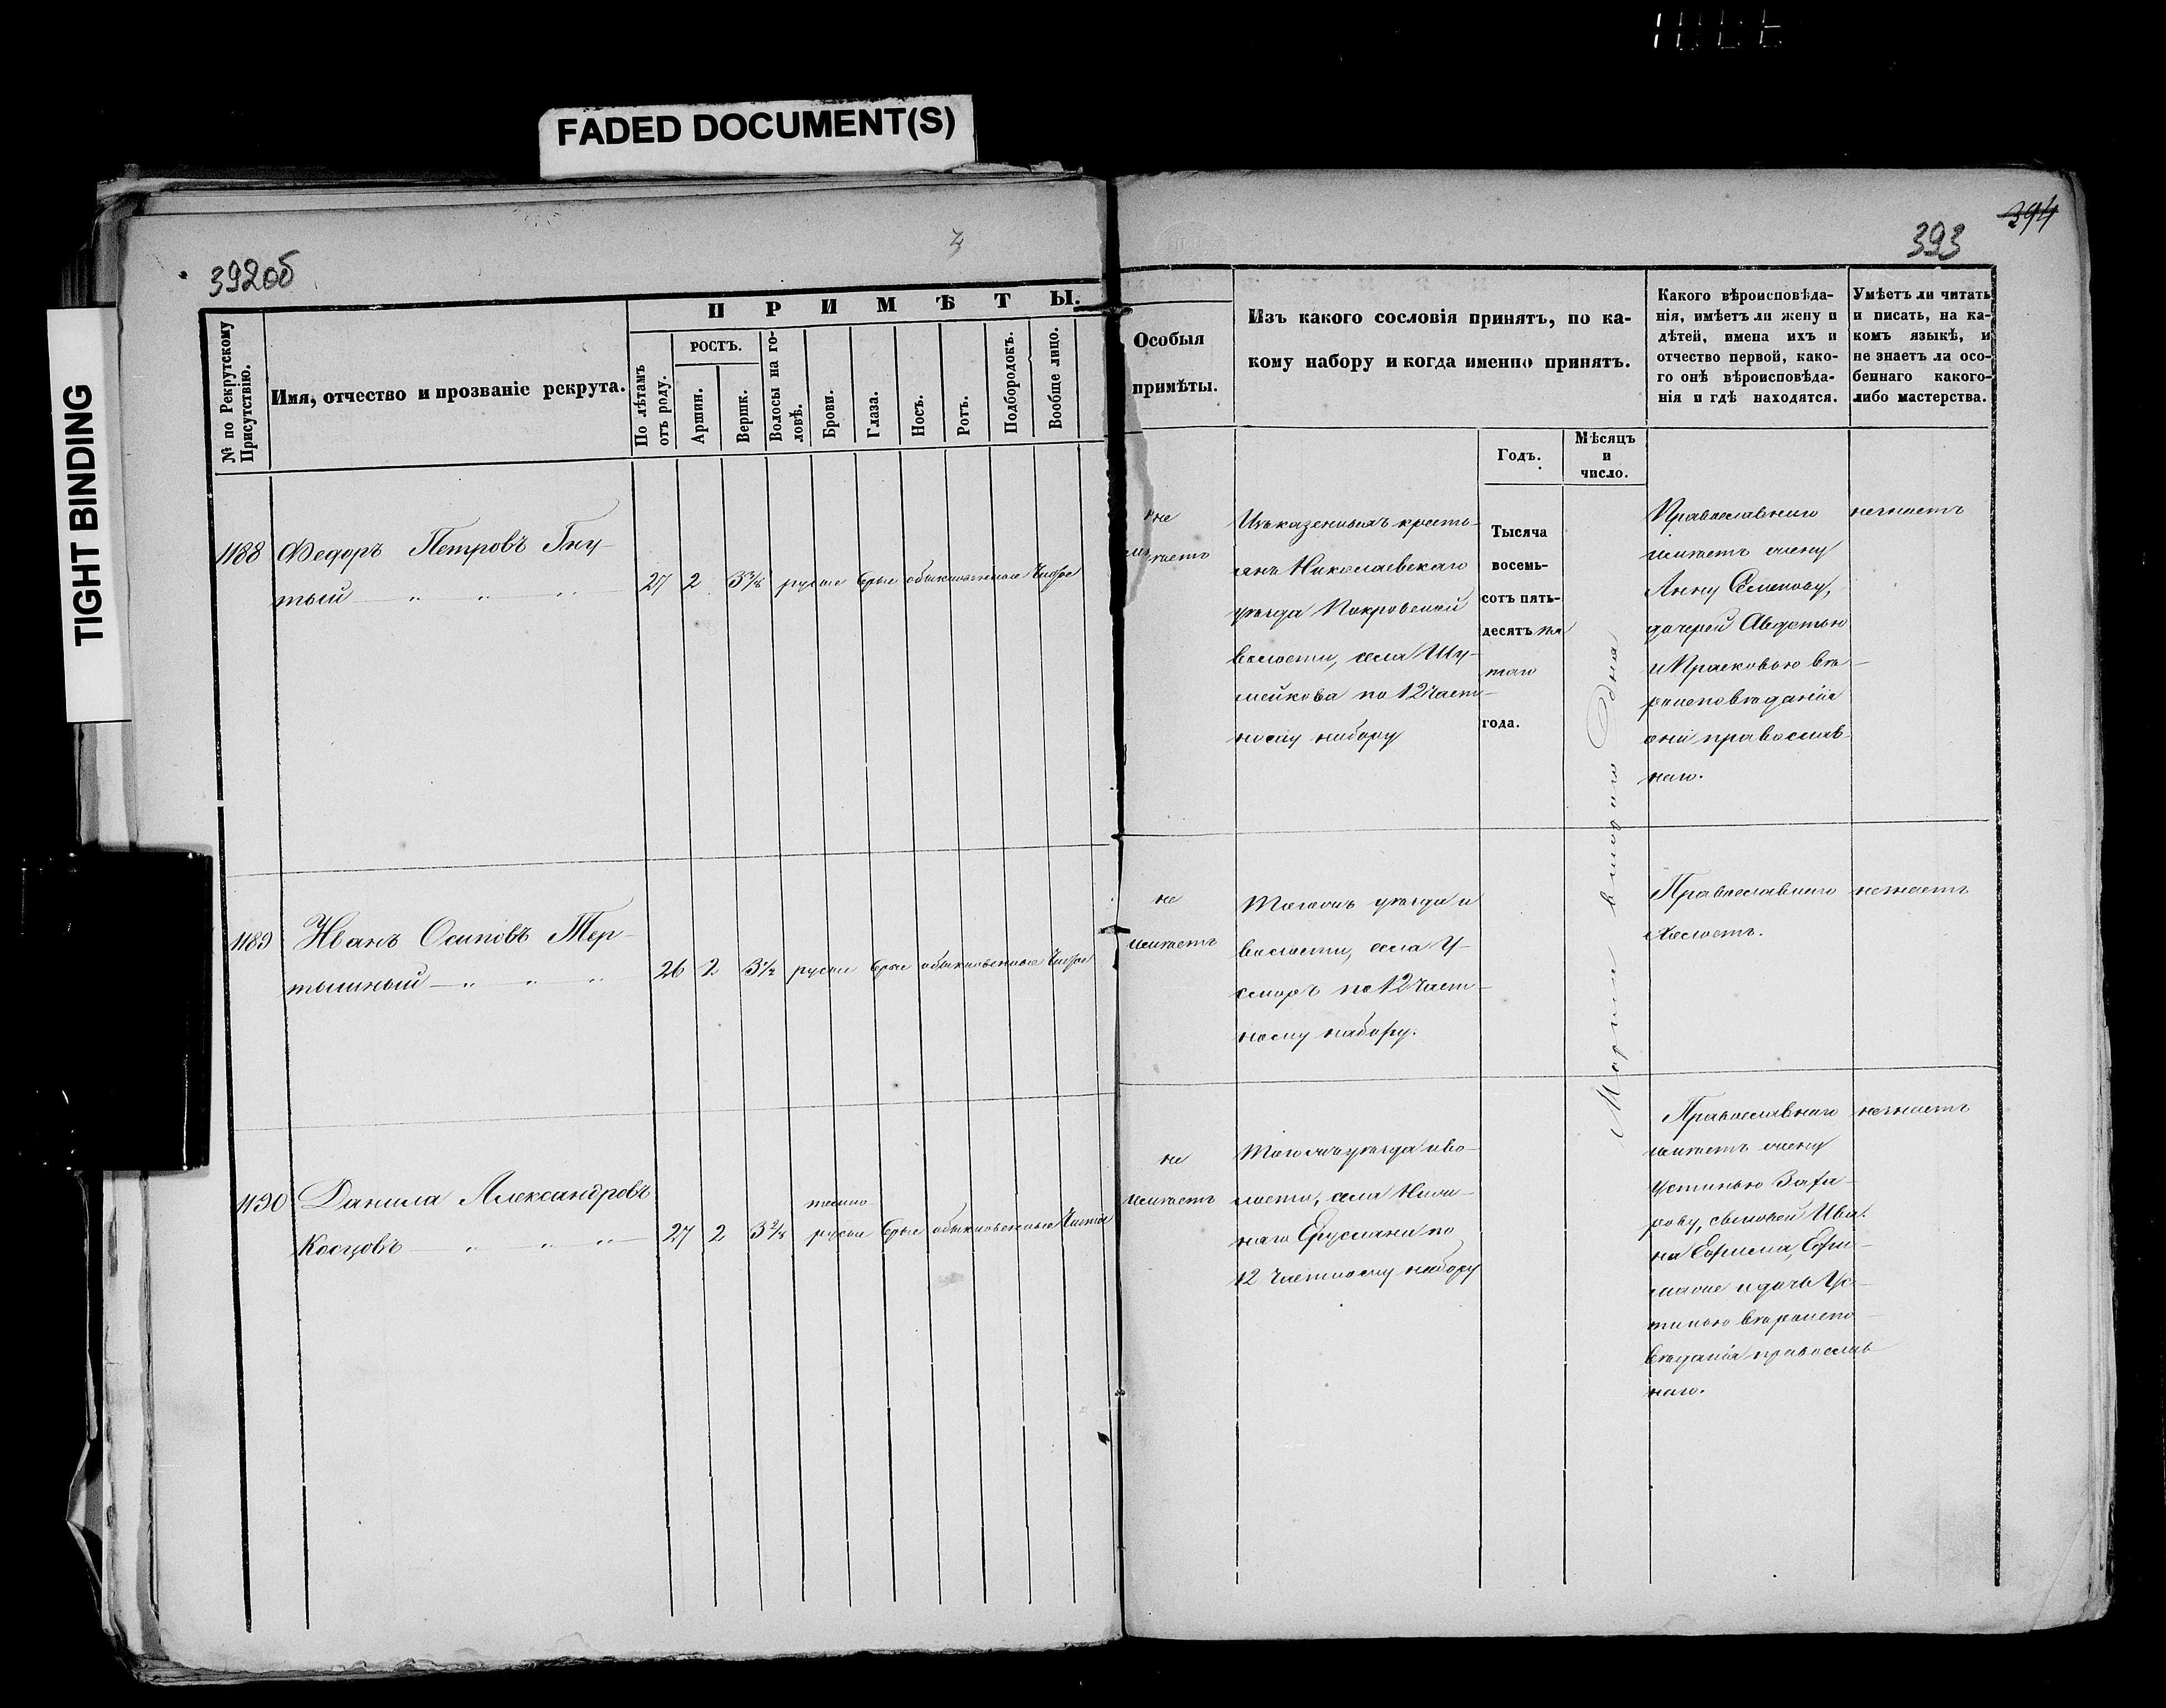 FADED DOCUMENT(S)
TIGHT BINDING
392об
393
394
ПРИМѢТЫ.
№ по Рекрутскому Присутствію.
Имя, отчество и прозваніе рекрута.
По лѣтамъ отъ роду.
РОСТЪ.
Аршин.
Вершк.
Волосы на го-
ловѣ.
Брови.
Глаза.
Носъ.
Ротъ.
Подбородокъ.
Вообще лицо.
Особыя
примѣты.
Изъ какого сословія принятъ, по ка-
кому набору и когда именно принятъ.
Годъ.
Мѣсяцъ
и
число.
Какого вѣроисповѣда-
нія, имѣетъ ли жену и
дѣтей, имена ихъ и
отчество первой, како-
го онѣ вѣроисповѣда-
нія и гдѣ находятся.
Умѣетъ ли читать
и писать, на ка-
комъ языкѣ, и
не знаетъ ли осо-
беннаго какого-
либо мастерства.
1188 Федоръ Петровъ Гну-
тый
27 2 3 3/8 русые серые обыкновенные Чистое
не
имѣетъ
Изъ казенныхъ кресть-
янъ Николаевскаго
уѣзда Покровской
волости, села Шу-
мейкова по 12 Част-
ному набору
Тысяча
восемь-
сотъ пять-
десятъ пя
таго
года.
Марта втораго дня
Православнаго
имѣетъ жену
Анну Семенову,
дочерей Авдотью
и Прасковью вѣ-
роисповѣданія
они православ-
наго.
незнаетъ
1189 Иванъ Осиповъ Тер-
тышный
26 2 3 1/2 русые серые обыкновенные Чистое
не
имѣетъ
Тогожъ уѣзда и
волости, села У-
зморъ по 12 Част-
ному набору.
Православнаго
Холостъ.
незнаетъ
1190 Данила Александровъ
Косцовъ
27 2 3 2/8 темно
русые серые обыкновенные Чистое
не
имѣетъ
Тогожъ уѣзда и во-
лости, села Нижи-
наго Еруслана по
12 Частному набору
Православнаго
имѣетъ жену
Устинью Заха-
рову, сыновей Ива-
на Ефрема, Ефи-
и дочь Ус-
тинью вѣроиспо-
вѣданія православ-
наго.
незнаетъ